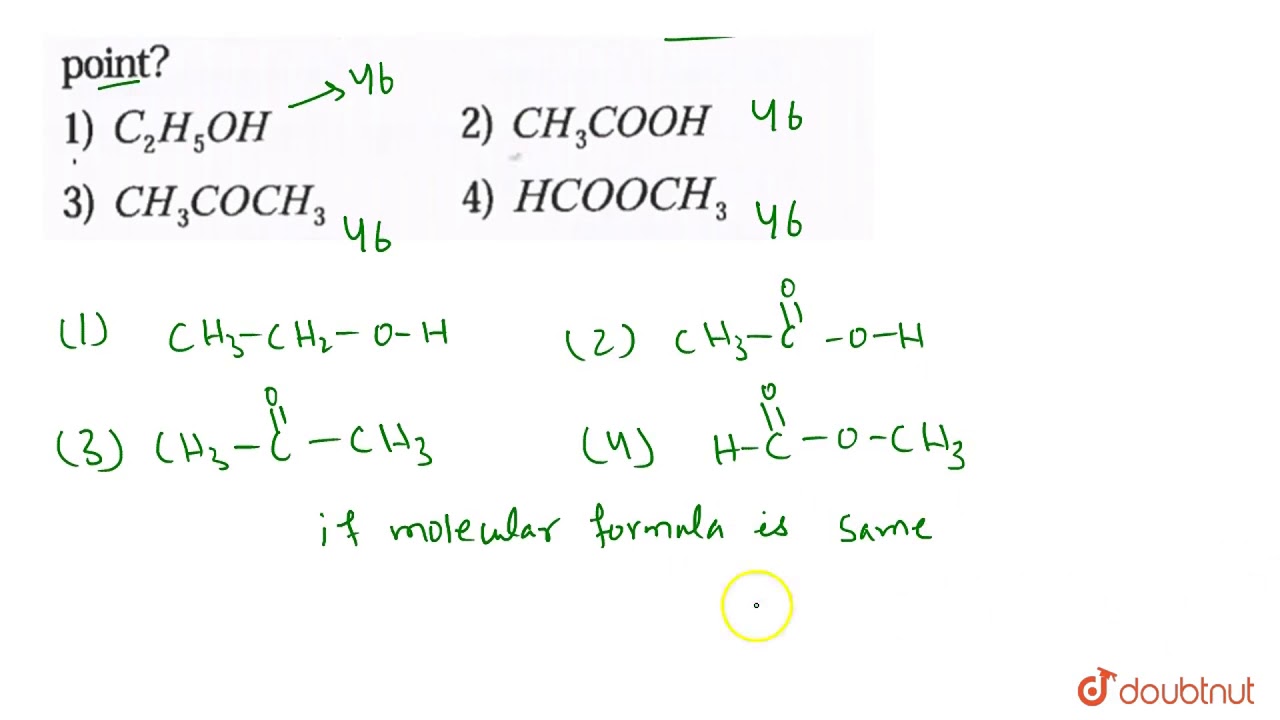 point?
46
1) C₂H₅OH
2) CH₃COOH 46
3) CH₃COCH₃ 46
4) HCOOCH₃ 46
(1) CH₃-CH₂-O-H
(2) CH₃-C-O-H
O
(3) CH₃-C-CH₃
O
(4) H-C-O-CH₃
O
if molecular formula is same
doubtnut